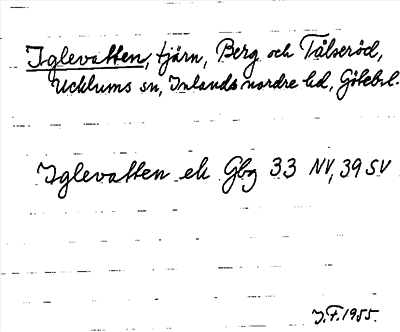 Iglevatten, tjärn, Berg och Tålseröd,
Ucklums sn, Inlands nordre hd, Götebsl.
Iglevatten ek Gbg 33 NV, 39 SV
J.F. 1955.